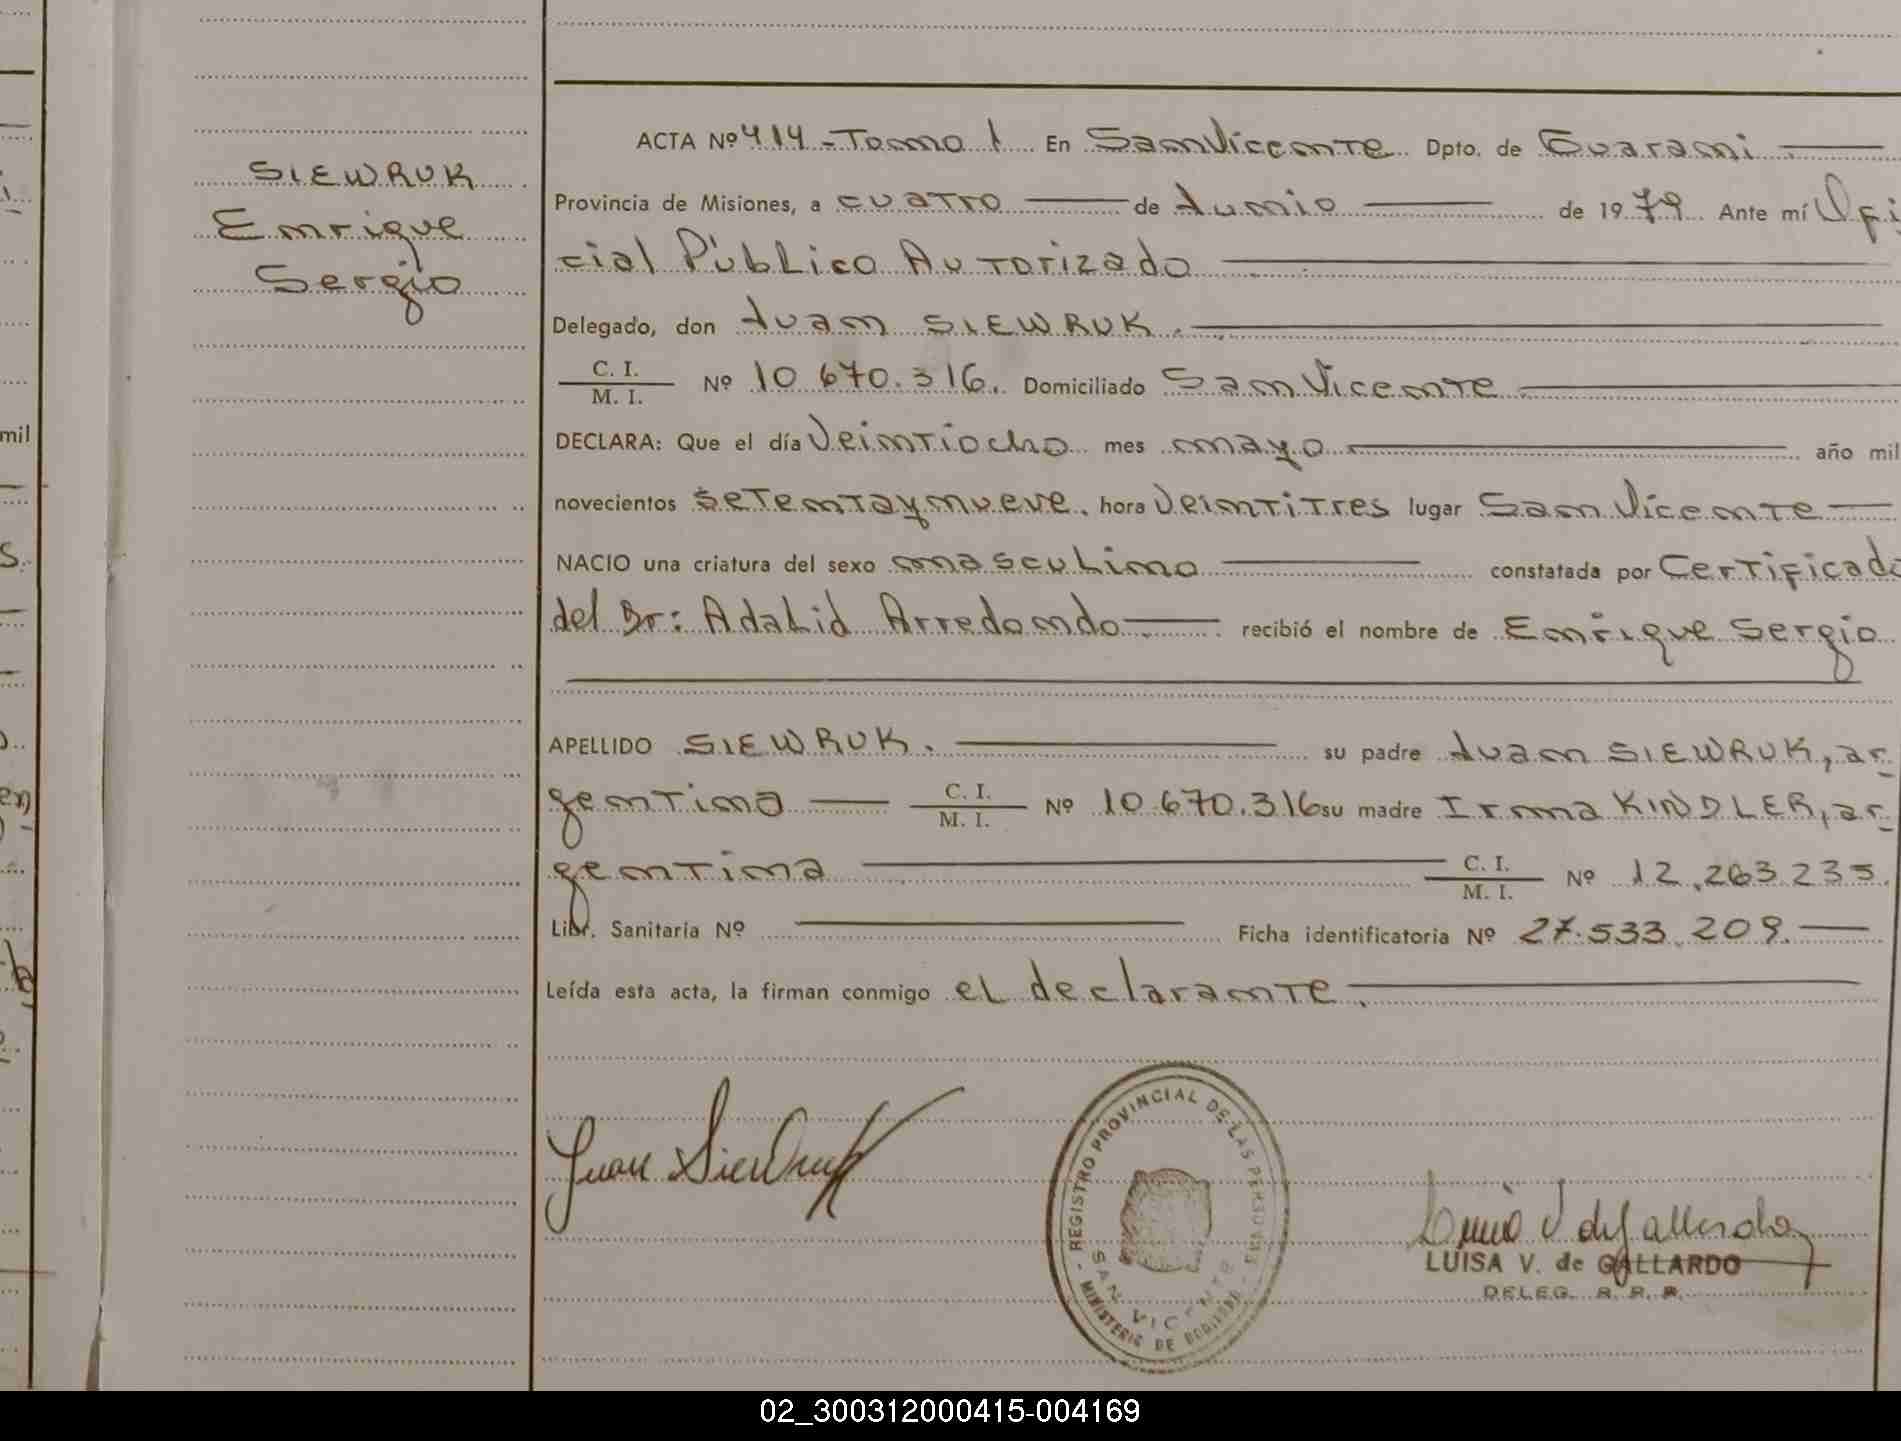 SIEWRUK
Enrique
Sergio
ACTA Nº 414 - Tomo 1 En San Vicente Dpto. de Guaraní
Provincia de Misiones, a cuatro de Junio de 1979 Ante mí Ofi
cial Público Autorizado
Delegado, don Juan SIEWRUK.
C. I.
M. I. Nº 10.670.316. Domiciliado San Vicente
DECLARA: Que el día Veintiocho mes mayo año mil
novecientos setenta y nueve. hora Veintitres lugar San Vicente
NACIO una criatura del sexo masculino constatada por Certificado
del Dr: Adalid Arredondo recibió el nombre de Enrique Sergio
APELLIDO SIEWRUK. su padre Juan SIEWRUK, ar-
gentino C. I. M. I. Nº 10.670.316 su madre Irma KINDLER, ar-
gentina C. I. M. I. Nº 12.263.235.
Libr. Sanitaria Nº Ficha identificatoria Nº 27.533.209.
Leída esta acta, la firman conmigo el declarante.
Juan Siewruk
REGISTRO PROVINCIAL DE LAS PERSONAS
SAN VICENTE
MINISTERIO DE GOBIERNO
LUISA V. de GALLARDO
DELEG. R. P. P.
02_300312000415-004169